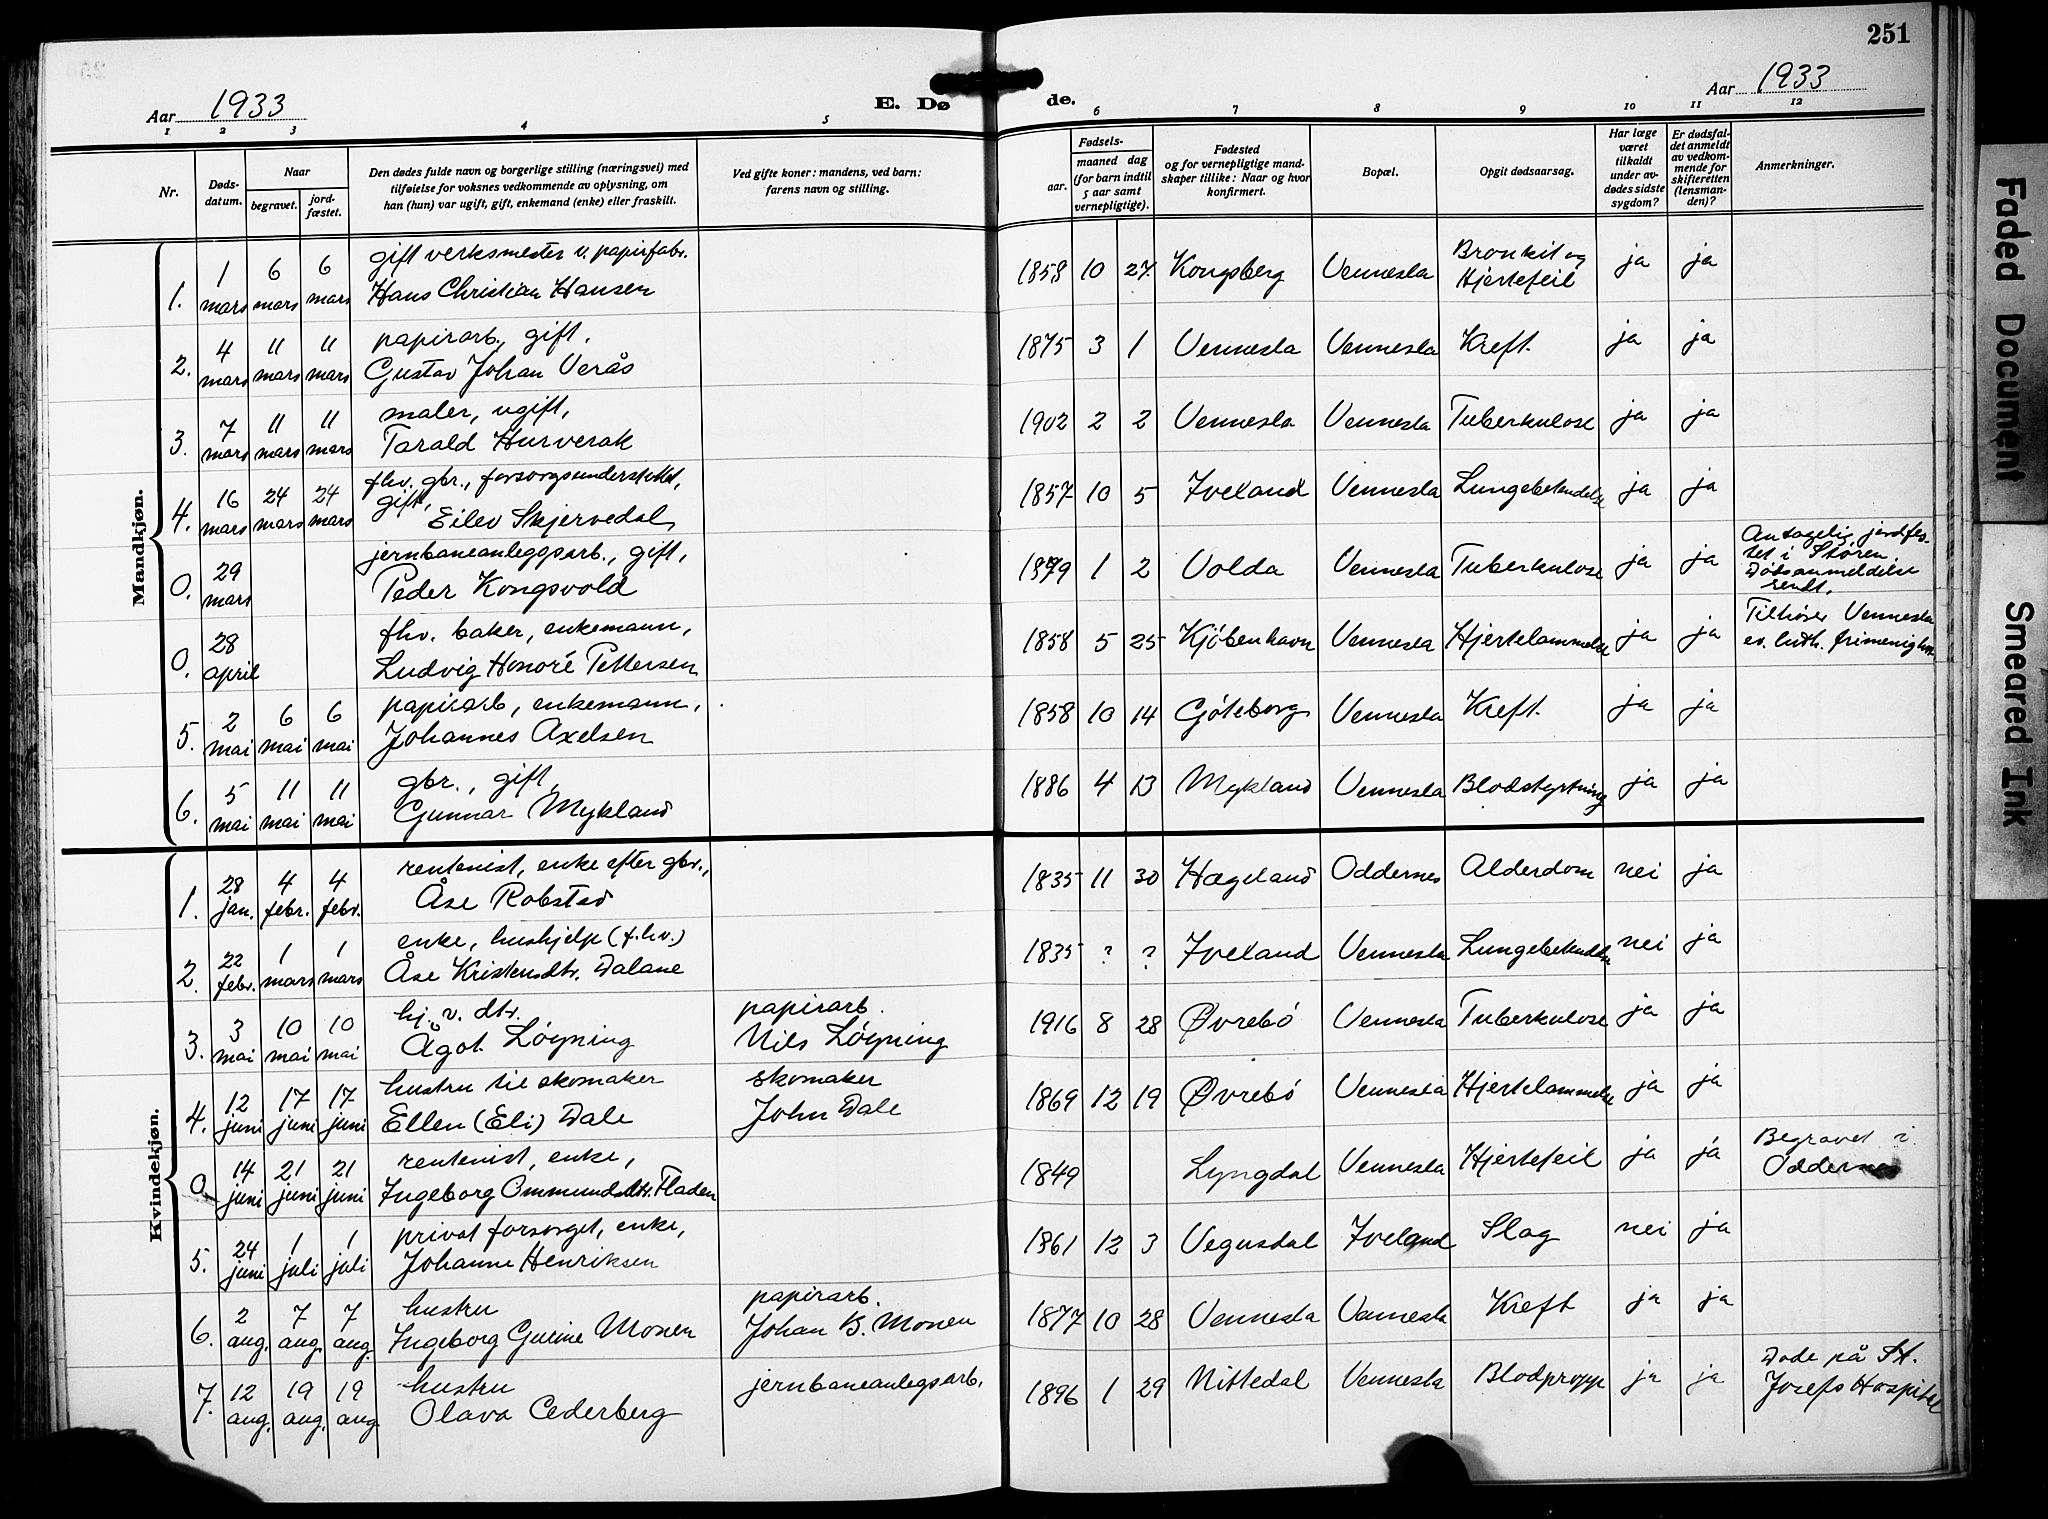 251
Aar 1933
E. Dø
de.
Aar 1933
1 2 3 4 5 6 7 8 9 10 11 12
Nr.
Døds-
datum.
Naar
begravet.
jord-
fæstet.
Den dødes fulde navn og borgerlige stilling (næringsvei) med
tilføielse for voksnes vedkommende av oplysning, om
han (hun) var ugift, gift, enkemand (enke) eller fraskilt.
Ved gifte koner: mandens, ved barn:
farens navn og stilling.
Fødsels-
aar.
maaned dag
(for barn indtil
5 aar samt
vernepligtige).
Fødested
og for vernepligtige mand-
skaper tillike: Naar og hvor
konfirmert.
Bopæl.
Opgit dødsaarsag.
Har læge
været
tilkaldt
under av-
dødes sidste
sygdom?
Er dødsfal-
det anmeldt
av vedkom-
mende for
skifteretten
(lensman-
den)?
Anmerkninger.
Mandkjøn.
1. 1 mars 6 mars 6 mars gift verksmester v. papirfabr.
Hans Christian Hansen
1858 10 27 Kongsberg Vennesla Bronkit og
Hjertefeil ja ja
2. 4 mars 11 mars 11 mars papirarb., gift.
Gustav Johan Verås
1875 3 1 Vennesla Vennesla Kreft. ja ja
3. 7 mars 11 mars 11 mars maler, ugift,
Tarald Hurverak
1902 2 2 Vennesla Vennesla Tuberkulose ja ja
4. 16 mars 24 mars 24 mars fhv. gbr., forsorgsunderstøttet,
gift,
Eilev Skjervedal
1857 10 5 Iveland Vennesla Lungebetendelse ja ja
0. 29 mars jernbaneanleggsarb., gift,
Peder Kongsvold
1879 1 2 Volda Vennesla Tuberkulose ja ja
Antagelig jordfes-
tet i Støren.
Dødsanmeldelse
sendt.
0. 28 april fhv. baker, enkemann,
Ludvig Honoré Pettersen
1858 5 25 Kjöbenhavn Vennesla Hjertelammelse ja ja
Tilhører Vennesla
ev. luth. frimenighet
5. 2 mai 6 mai 6 mai papirarb, enkemann,
Johannes Axelsen
1858 10 14 Göteborg Vennesla Kreft. ja ja
6. 5 mai 11 mai 11 mai gbr., gift,
Gunnar Mykland
1886 4 13 Mykland Vennesla Blodstyrtning ja ja
Kvindekjøn.
1. 28 jan. 4 febr. 4 febr. rentenist, enke efter gbr.,
Åse Robstad
1835 11 30 Hægeland Oddernes Alderdom nei ja
2. 22 febr. 1 mars 1 mars enke, hushjelp (f.hv.)
Åse Kristensdtr. Dalane
1835 ? ? Iveland Vennesla Lungebetendelse nei ja
3. 3 mai 10 mai 10 mai hj. v. dtr.
Ågot Löyning
papirarb.
Nils Löyning
1916 8 28 Øvrebö Vennesla Tuberkulose ja ja
4. 12 juni 17 juni 17 juni hustru til skomaker
Ellen (Eli) Dale
skomaker
John Dale
1869 12 19 Øvrebö Vennesla Hjertelammelse ja ja
0 14 juni 21 juni 21 juni rentenist, enke,
Ingeborg Ommundsdtr. Fladen
1849 Lyngdal Vennesla Hjertefeil ja ja
Begravet i
Oddernes
5. 24 juni 1 juli 1 juli privat forsorget, enke,
Johanne Henriksen
1861 12 3 Vegusdal Iveland Slag nei ja
6. 2 aug. 7 aug. 7 aug. hustru
Ingeborg Gurine Monen
papirarb.
Johan B. Monen
1877 10 28 Vennesla Vennesla Kreft ja ja
7. 12 aug. 19 aug. 19 aug. hustru
Olava Cederberg
jernbaneanlegsarb.
1896 1 29 Nittedal Vennesla Blodpropp ja ja
Døde på St.
Josefs Hospital
Faded Document
Smeared Ink